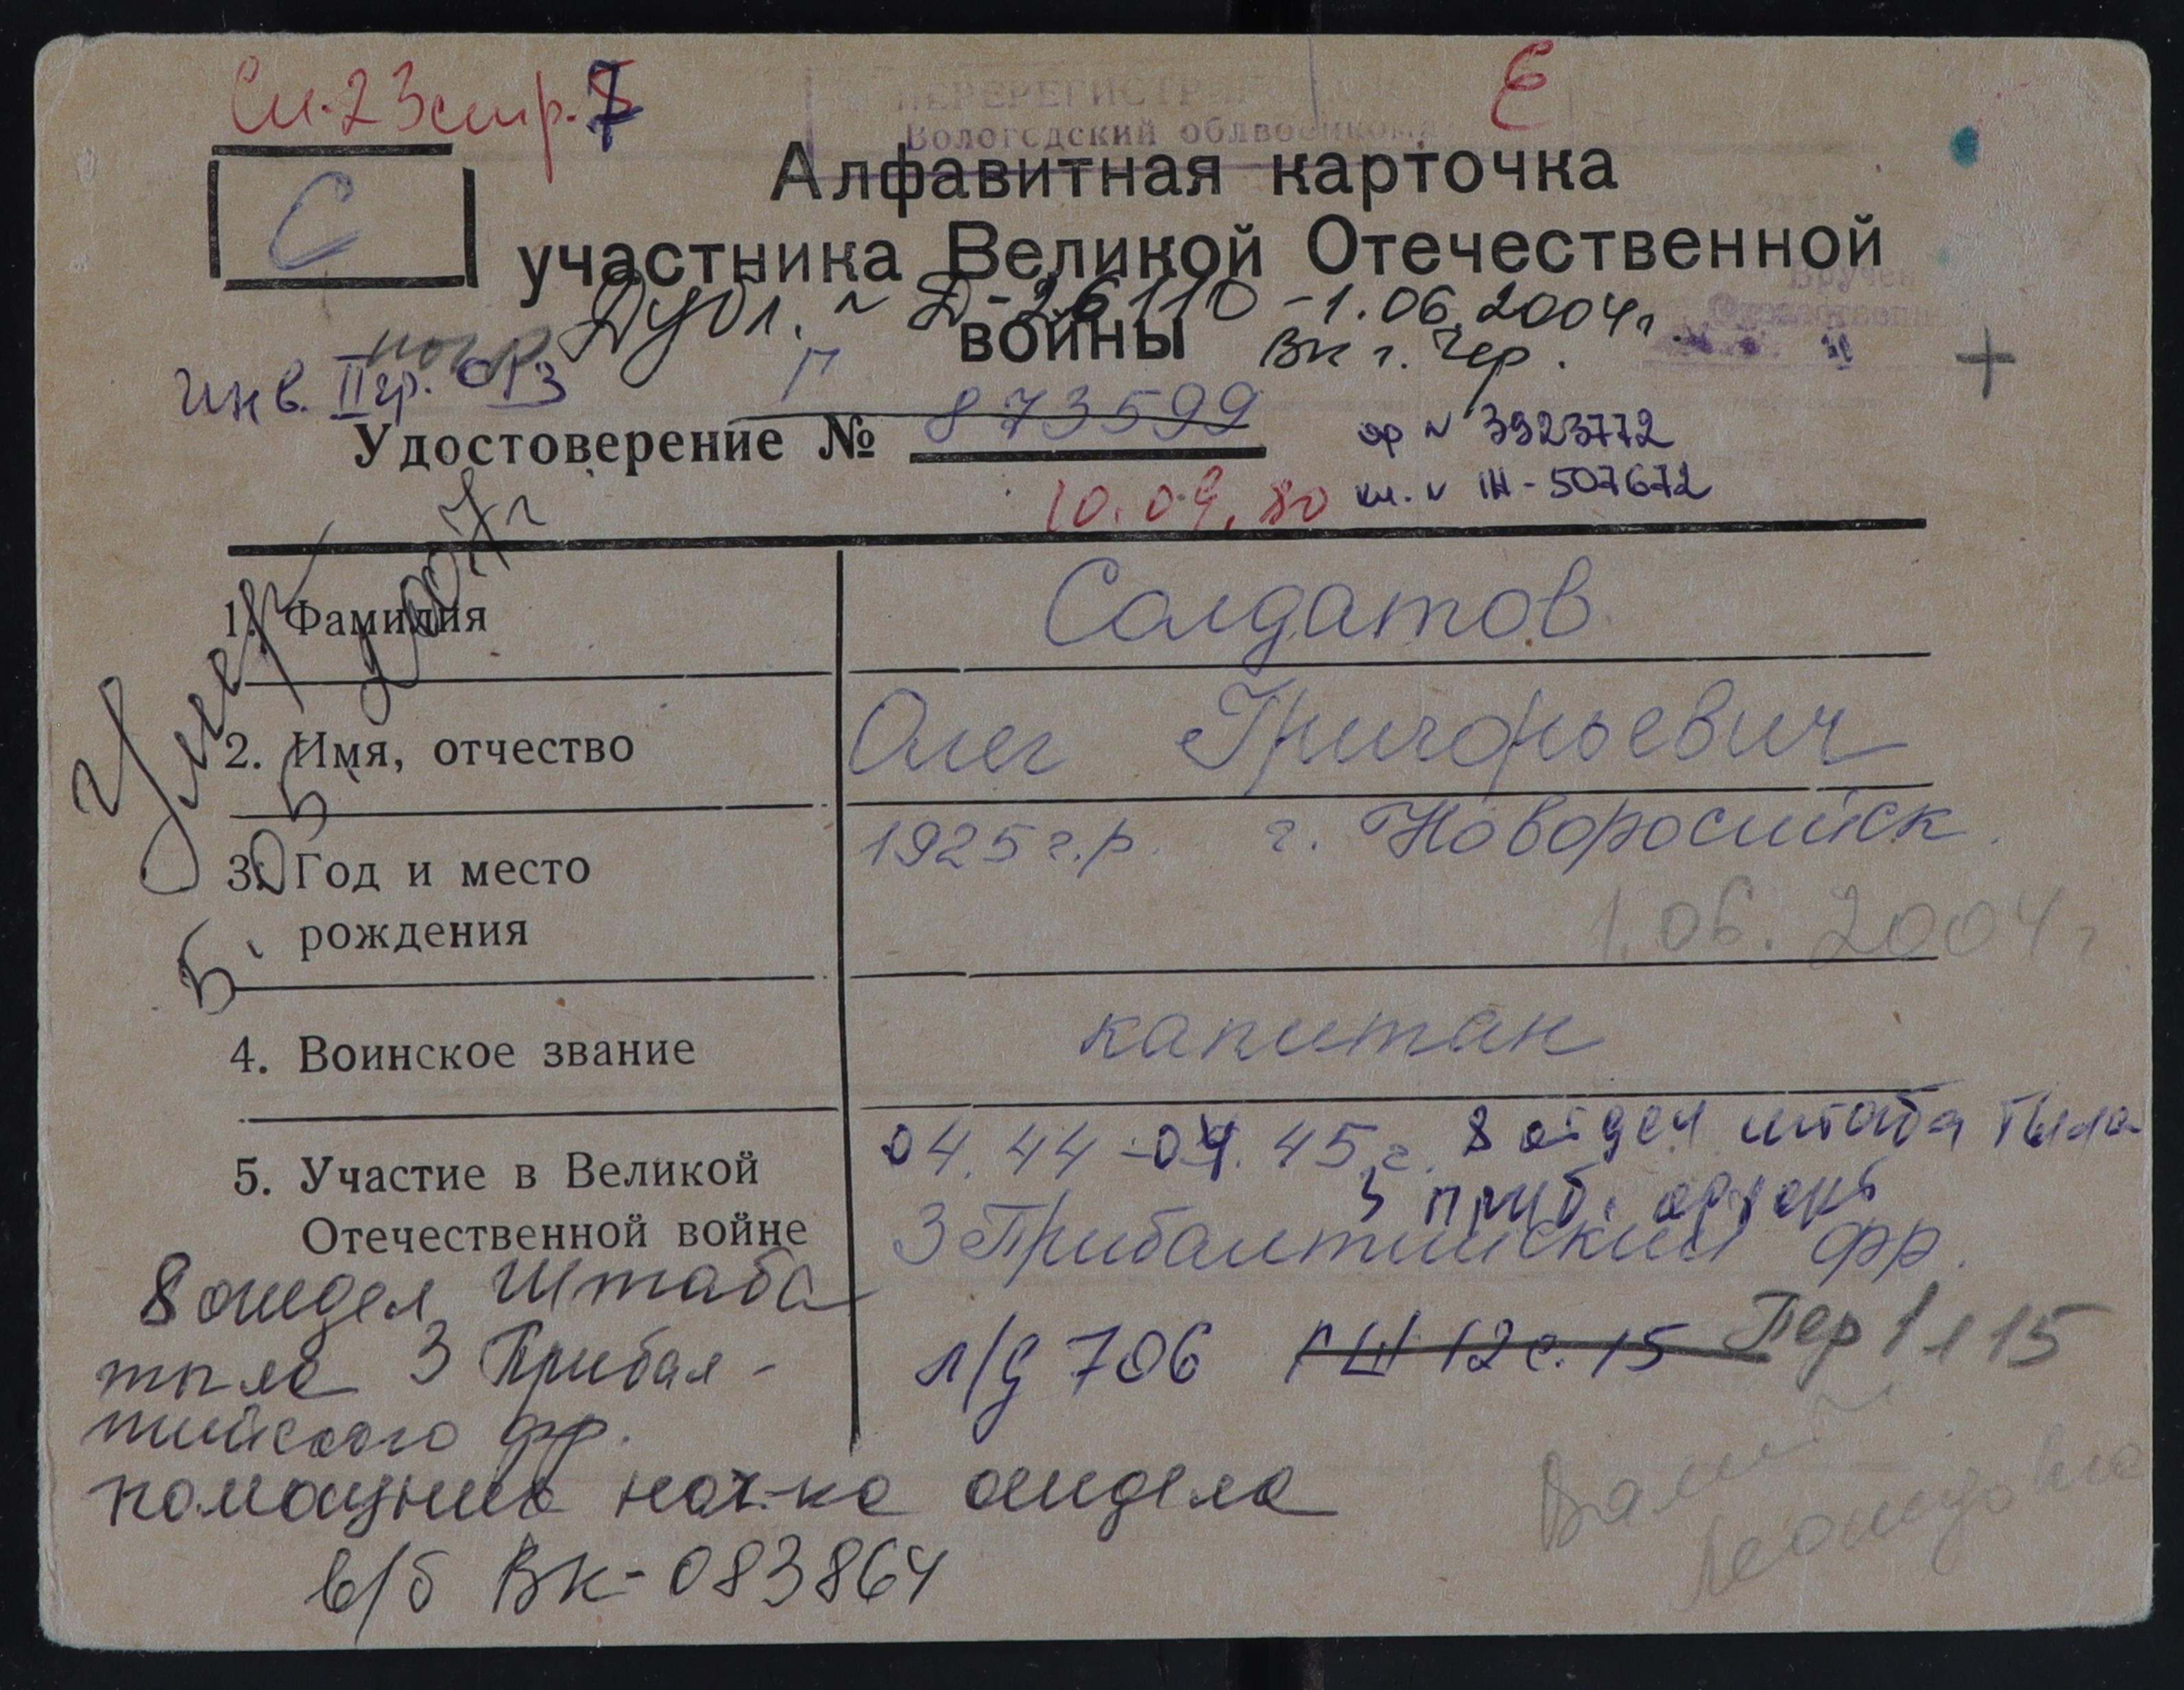 Сп.23 стр. 7
Е
ПЕРЕРЕГИСТР
Вологодский облвоенкома
С
Алфавитная карточка
участника Великой Отечественной
войны
Дубл. ~ Д-26110 - 1.06.2004г.
ВК г. Чер.
Инв. II гр.
Г
Удостоверение № 873599
ор № 3923772
кн. №  - 507672
10.09.80
Умер
05.
2007г
Б.
1. Фамилия
Солдатов
2. Имя, отчество
Олег Григорьевич
3. Год и место
рождения
1925 г.р. г. Новоросийск.
1.06.2004г
4. Воинское звание
капитан
5. Участие в Великой
Отечественной войне
04.44-04.45 г. 8 отдел штаба тыла
3 приб.
3 Прибалтийский фр.
л/д 706 ГШ 12 с. 15 Пер 1 л 15
8 отдел Штаба
тыла 3 Прибал-
тийского фр.
помощник нач-ка отдела
в/б ВК-083864
Леонидовна